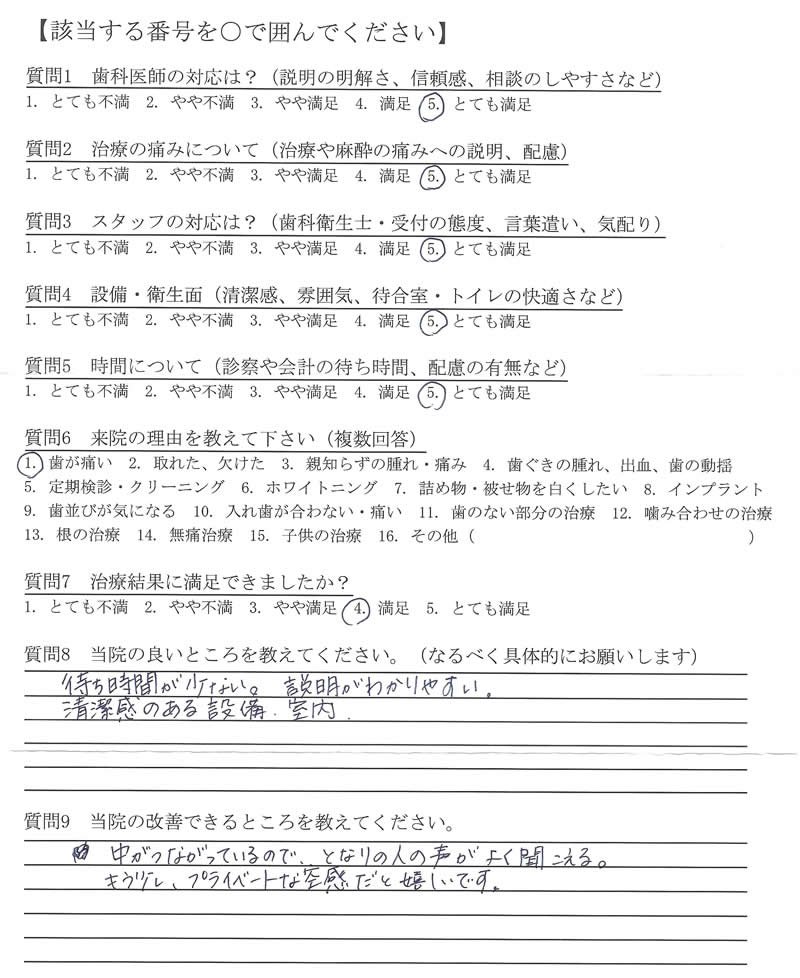 【該当する番号を○で囲んでください】
質問1　歯科医師の対応は？（説明の明解さ、信頼感、相談のしやすさなど）
1. とても不満　2. やや不満　3. やや満足　4. 満足　5. とても満足
質問2　治療の痛みについて（治療や麻酔の痛みへの説明、配慮）
1. とても不満　2. やや不満　3. やや満足　4. 満足　5. とても満足
質問3　スタッフの対応は？（歯科衛生士・受付の態度、言葉遣い、気配り）
1. とても不満　2. やや不満　3. やや満足　4. 満足　5. とても満足
質問4　設備・衛生面（清潔感、雰囲気、待合室・トイレの快適さなど）
1. とても不満　2. やや不満　3. やや満足　4. 満足　5. とても満足
質問5　時間について（診察や会計の待ち時間、配慮の有無など）
1. とても不満　2. やや不満　3. やや満足　4. 満足　5. とても満足
質問6　来院の理由を教えて下さい（複数回答）
1. 歯が痛い　2. 取れた、欠けた　3. 親知らずの腫れ・痛み　4. 歯ぐきの腫れ、出血、歯の動揺
5. 定期検診・クリーニング　6. ホワイトニング　7. 詰め物・被せ物を白くしたい　8. インプラント
9. 歯並びが気になる　10. 入れ歯が合わない・痛い　11. 歯のない部分の治療　12. 噛み合わせの治療
13. 根の治療　14. 無痛治療　15. 子供の治療　16. その他（　　　　　）
質問7　治療結果に満足できましたか？
1. とても不満　2. やや不満　3. やや満足　4. 満足　5. とても満足
質問8　当院の良いところを教えてください。（なるべく具体的にお願いします）
待ち時間が少ない。説明がわかりやすい。
清潔感のある設備、室内.
質問9　当院の改善できるところを教えてください。
中がつながっているので、となりの人の声がよく聞こえる。
もう少し、プライベートな空感だと嬉しいです。